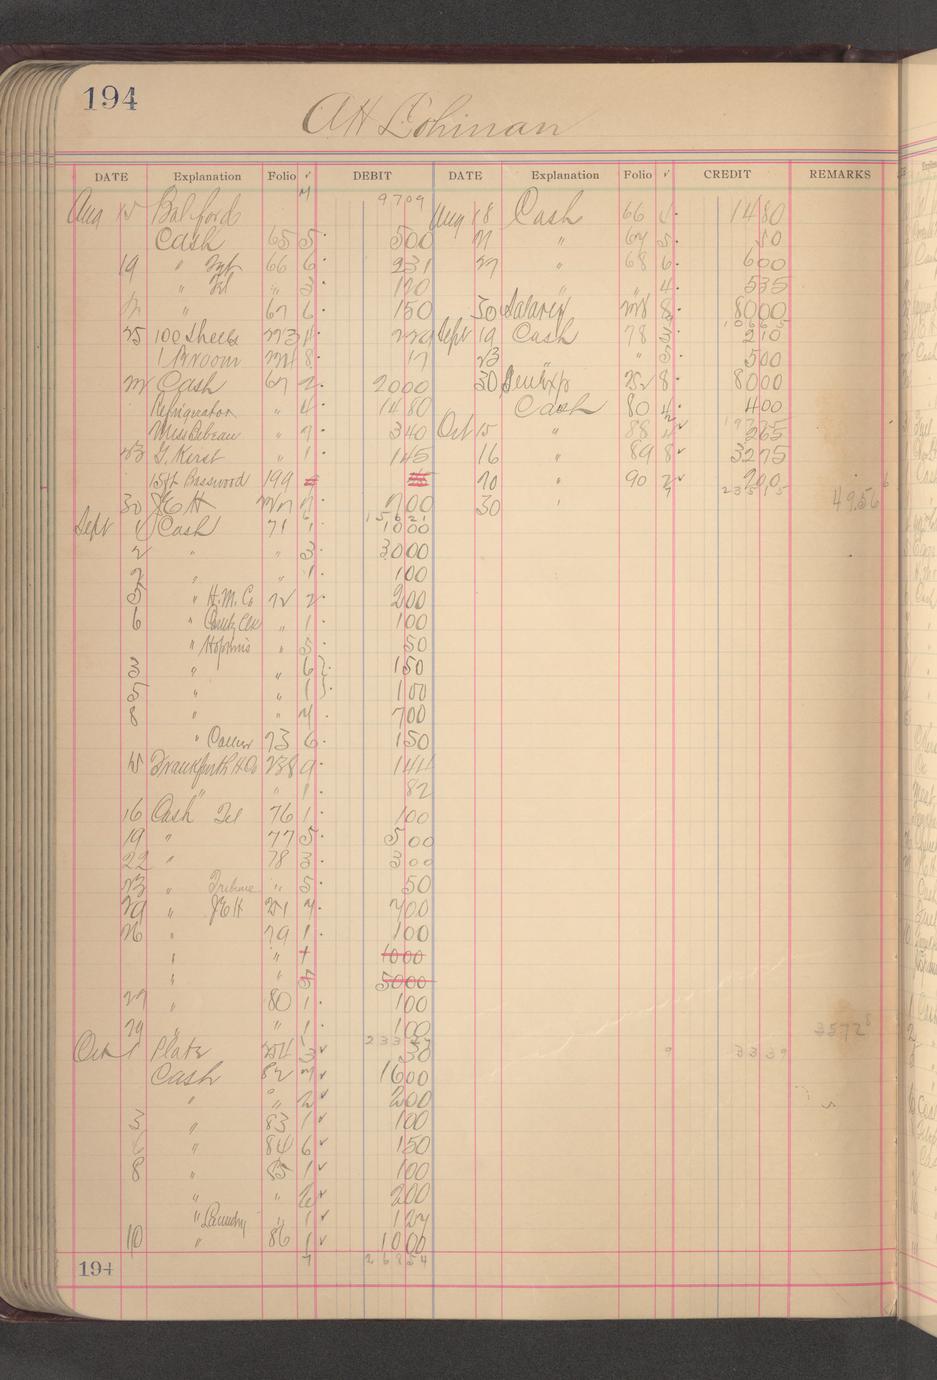 194
A H Lohman
DATE Explanation Folio √ DEBIT DATE Explanation Folio √ CREDIT REMARKS
9709
Aug 15 Balfords Aug 18 Cash 66 4 1480
Cash 65 5 500 " 67 5 50
19 " 66 6 231 27 " 68 6 600
" Tel " 3 120 " " 4 535
" 67 6 150 30 Salaries 8 8000
10665
25 100 Sheets 4 229 Sept 19 Cash 78 3 210
1 Broom 8 17 23 " 5 500
Cash 67 2 2000 30 Genl Exp 252 8 8000
Refrigerator " 4 1480 Cash 80 4 400
Miss Bebeau " 7 340 Oct 15 " 88 4 265
23 G. Kerst " 1 145 16 " 89 8 3275
15 ft Basswood 199 20 " 90 2 200
23515
30 J E H 7 700 30 " 4956
15621
Sept 1 Cash 71 1 1000
2 " " 3 3000
2 " " 1 100
5 " H.M. Co 72 2 200
6 " " 1 100
" Hopkins " 5 50
3 " " 6 150
5 " " 1 100
8 " " 7 700
" 73 6 150
15 Frankfurth H Co 238 9 144
" " 1 82
16 Cash Tel 76 1 100
19 " 77 5 500
22 " 78 3 300
23 " Tribune " 5 50
29 " J E H 251 7 700
26 " 79 1 100
" " 1 1000
" " 5 5000
27 " 80 1 100
29 " " 1 100
35728
Oct 1 Platz 254 3 50 3339
Cash 82 7 1600
" " 2 200
3 " 83 1 100
6 " 84 6 150
8 " 85 1 100
" " 2 200
" Laundry " 1 127
10 " 86 1 1000
194 7 26854